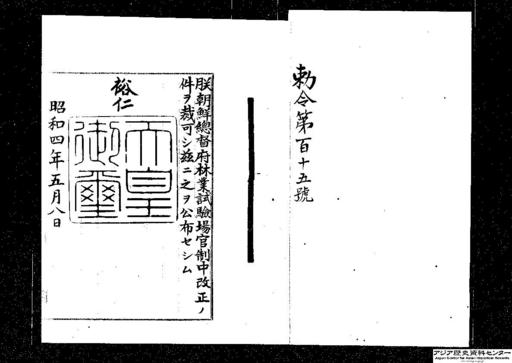 勅令第百十五號
朕朝鮮總督府林業試驗場官制中改正ノ
件ヲ裁可シ玆ニ之ヲ公布セシム
裕仁
天皇
御璽
昭和四年五月八日
アジア歴史資料センター
Japan Center for Asian Historical Records